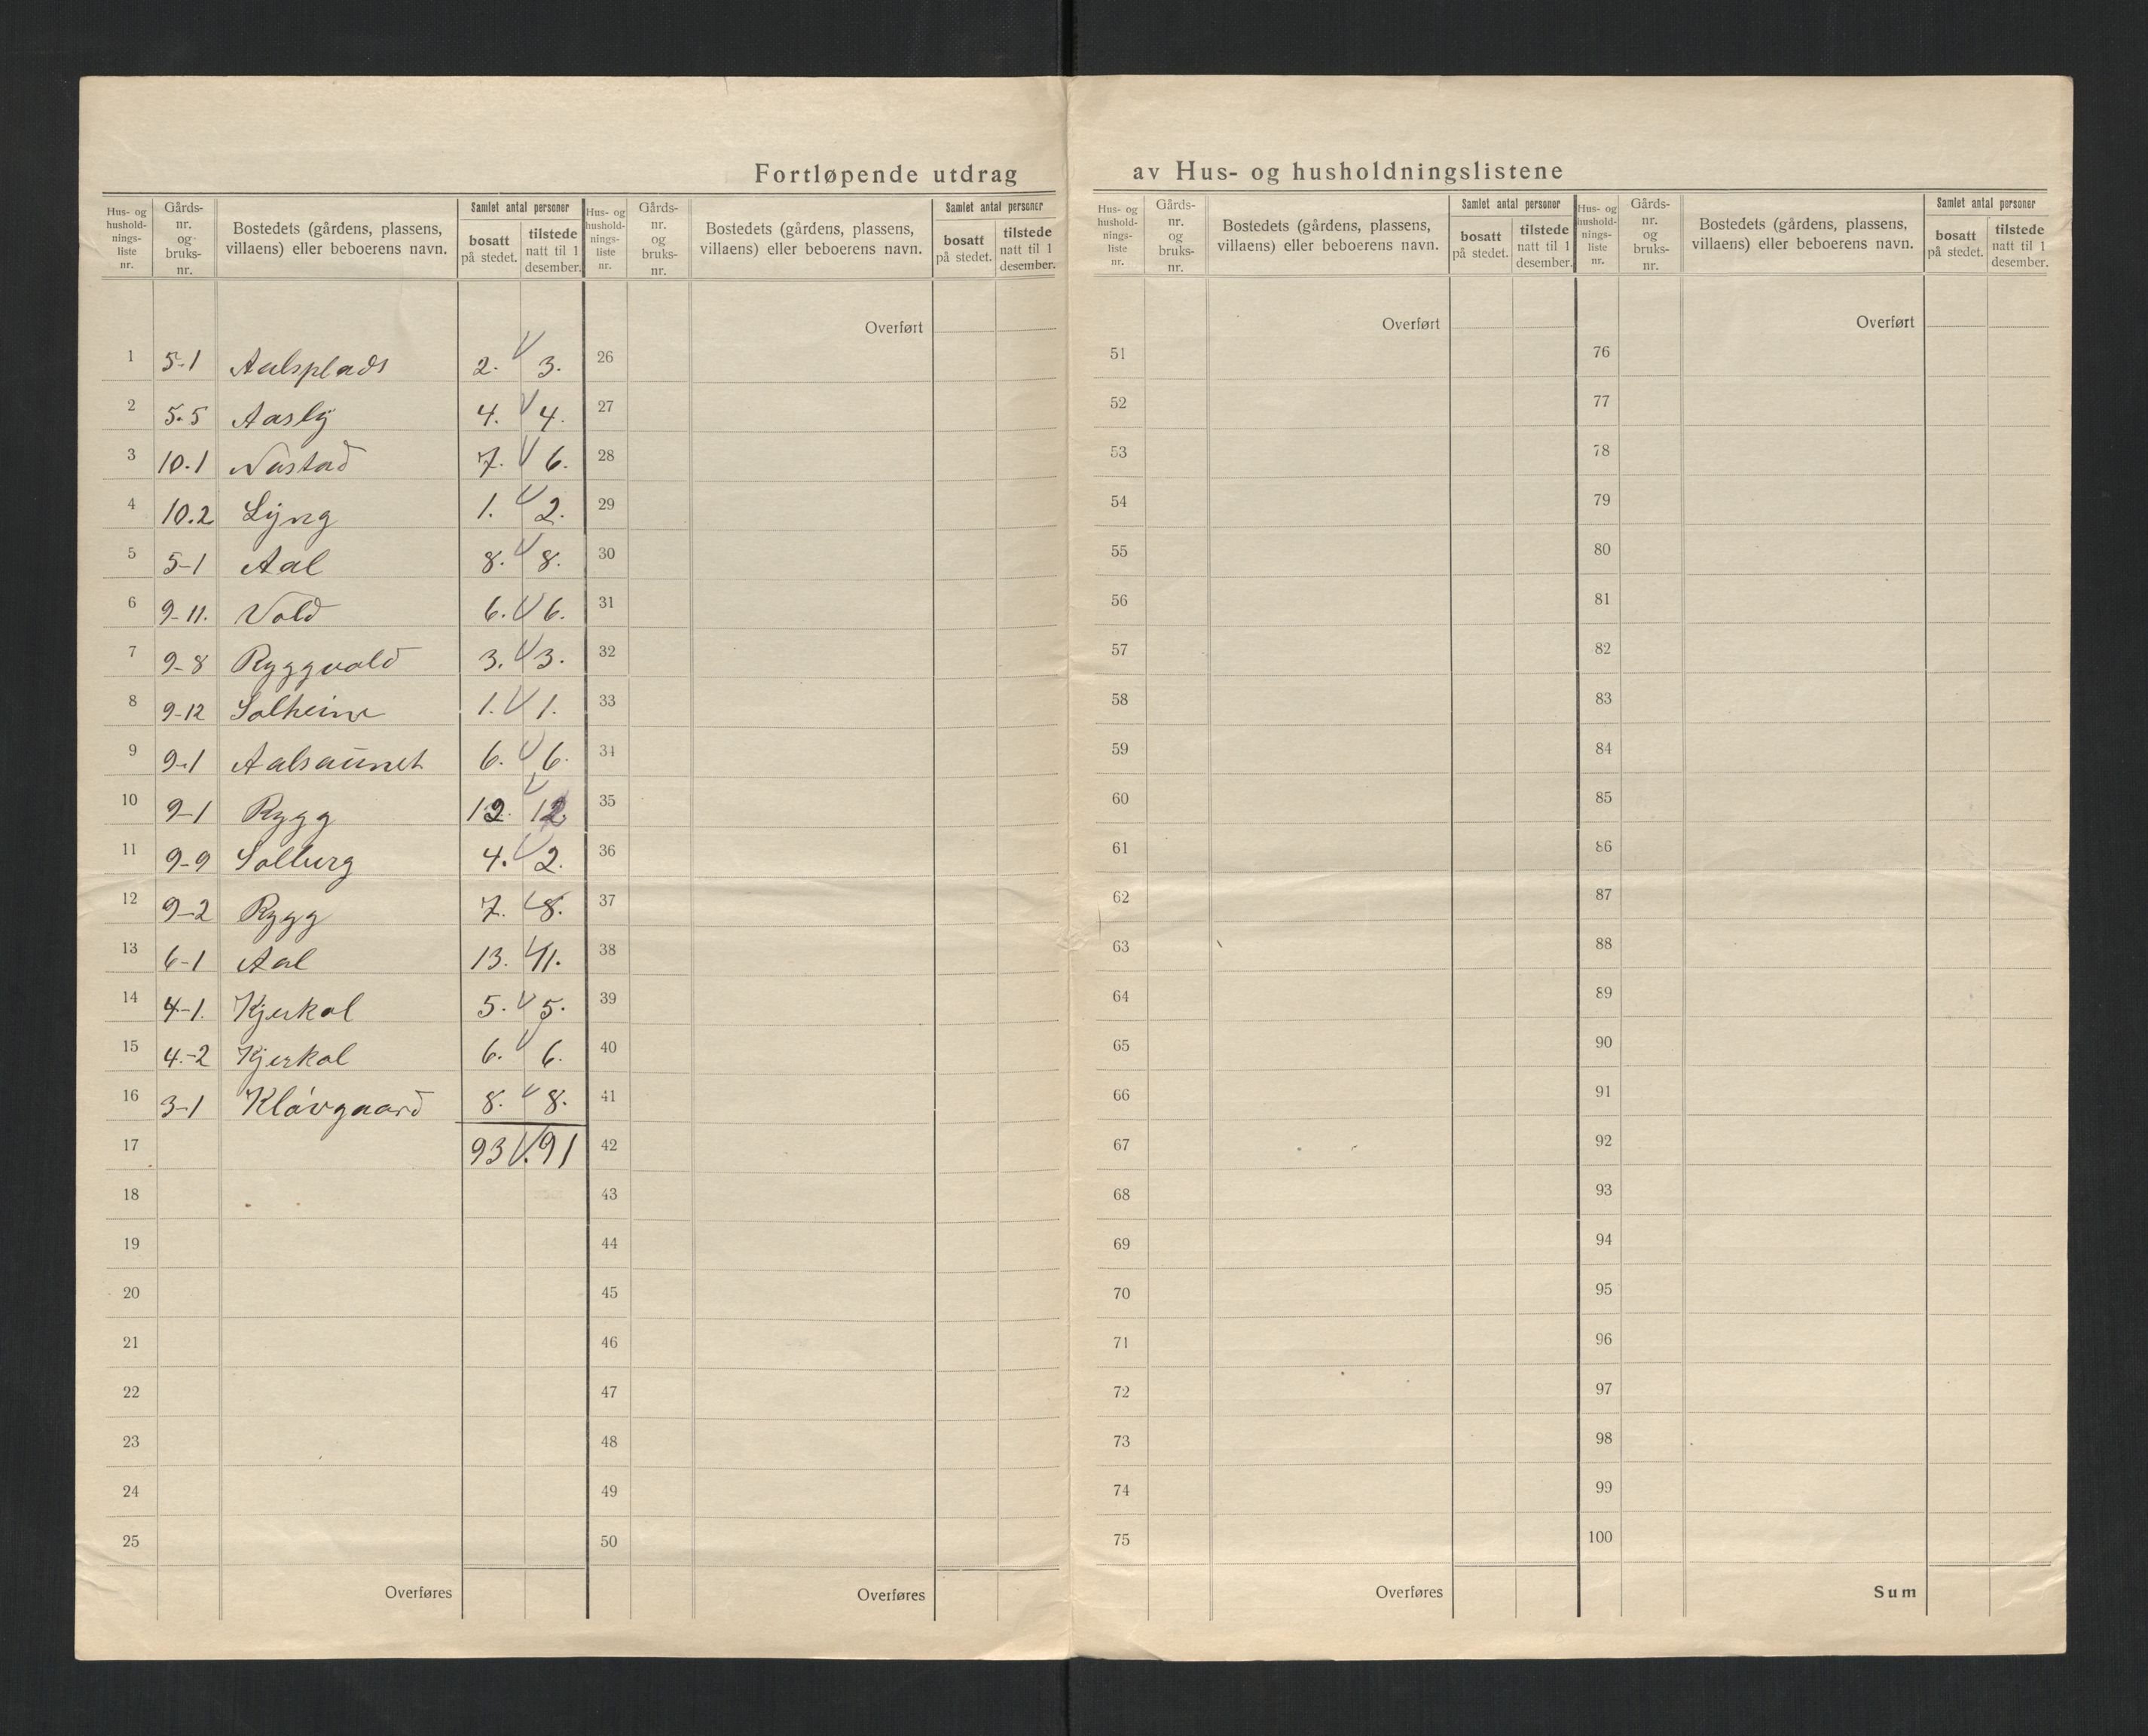 Fortløpende utdrag av Hus- og husholdningslistene
Hus- og hushold- nings- liste nr. | Gårds- nr. og bruks- nr. | Bostedets (gårdens, plassens, villaens) eller beboerens navn. | Samlet antal personer | bosatt på stedet. | tilstede natt til 1 desember.
1 5-1 Aalsplads 2. 3.
2 5.5 Aasly 4. 4.
3 10.1 Nåstad 7. 6.
4 10.2 Lyng 1. 2.
5 5-1 Aal 8. 8.
6 9-11. Vold 6. 6.
7 9-8 Ryggvold 3. 3.
8 9-12 Solheim 1. 1.
9 9-1 Aalsaunet 6. 6.
10 9-1 Rygg 12. 12
11 9-9 Solberg 4. 2.
12 9-2 Rygg 7. 8.
13 6-1 Aal 13. 11.
14 4-1. Kjerkol 5. 5.
15 4.-2 Kjerkol 6. 6.
16 3-1 Kløvgaard 8. 8.
17 93 91
18
19
20
21
22
23
24
25
Overføres
Hus- og hushold- nings- liste nr. | Gårds- nr. og bruks- nr. | Bostedets (gårdens, plassens, villaens) eller beboerens navn. | Samlet antal personer | bosatt på stedet. | tilstede natt til 1 desember.
Overført
26
27
28
29
30
31
32
33
34
35
36
37
38
39
40
41
42
43
44
45
46
47
48
49
50
Overføres
Hus- og hushold- nings- liste nr. | Gårds- nr. og bruks- nr. | Bostedets (gårdens, plassens, villaens) eller beboerens navn. | Samlet antal personer | bosatt på stedet. | tilstede natt til 1 desember.
Overført
51
52
53
54
55
56
57
58
59
60
61
62
63
64
65
66
67
68
69
70
71
72
73
74
75
Overføres
Hus- og hushold- nings- liste nr. | Gårds- nr. og bruks- nr. | Bostedets (gårdens, plassens, villaens) eller beboerens navn. | Samlet antal personer | bosatt på stedet. | tilstede natt til 1 desember.
Overført
76
77
78
79
80
81
82
83
84
85
86
87
88
89
90
91
92
93
94
95
96
97
98
99
100
Sum